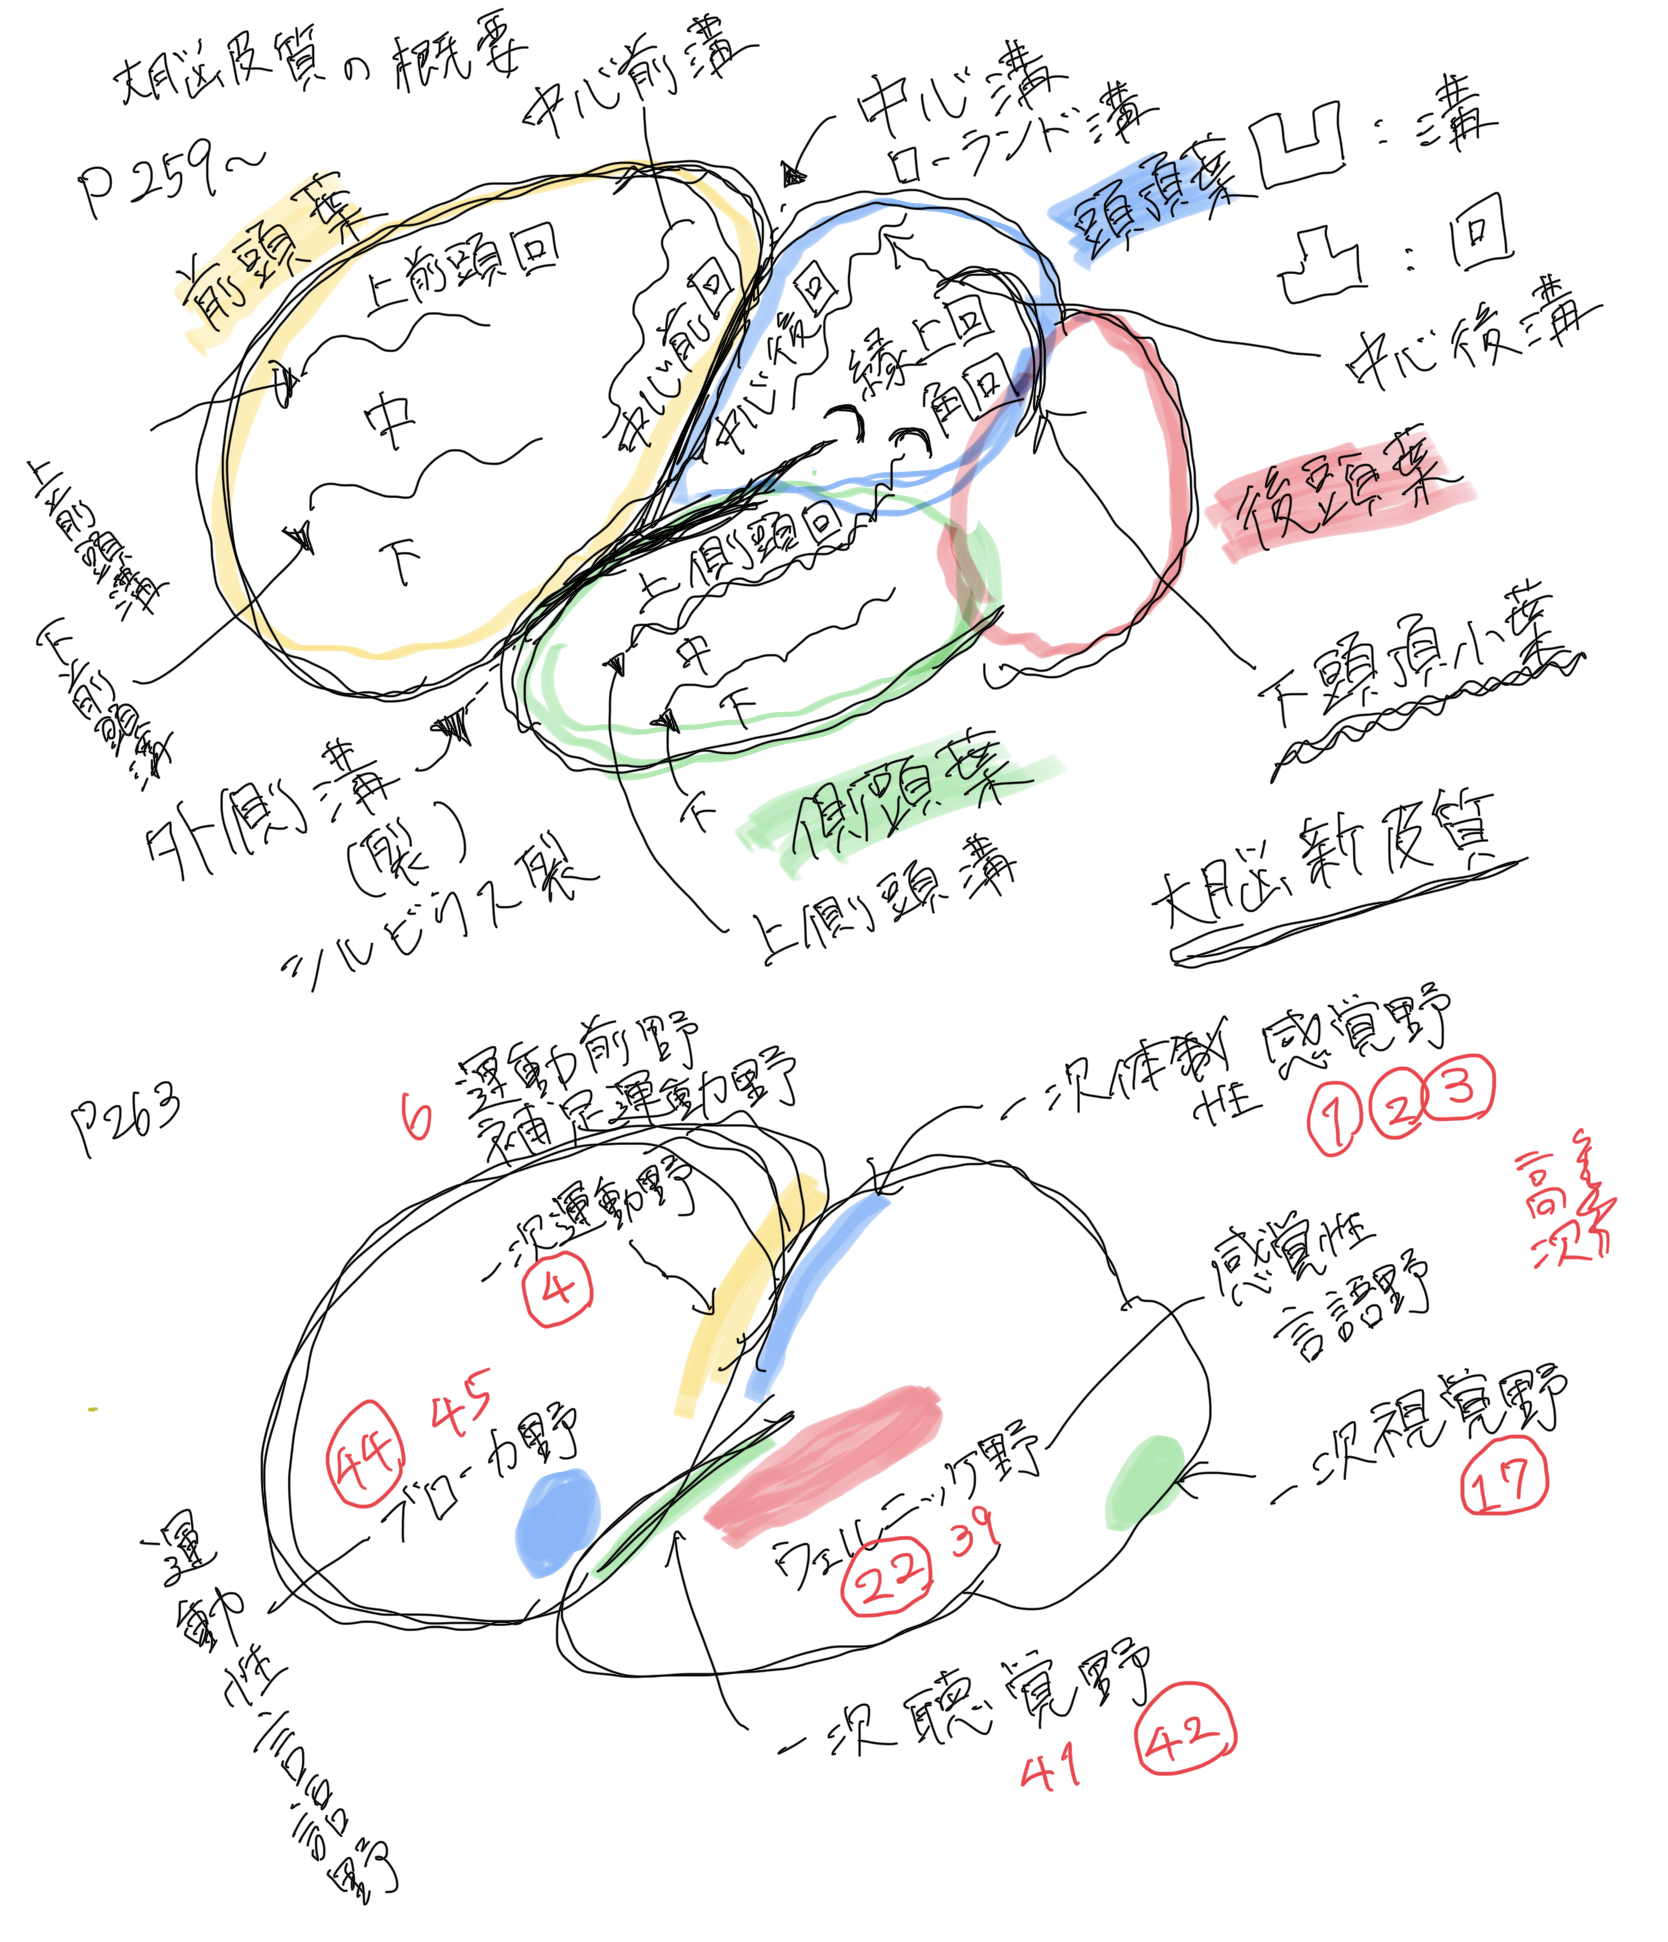 大脳皮質の概要
P259〜
中心前溝
中心溝
ローランド溝
前頭葉
頭頂葉
凹:溝
凸:回
上前頭回
中心前回
中心後回
縁上回
角回
中心後溝
中
下
上前頭溝
下前頭溝
後頭葉
上側頭回
中
下
下頭頂小葉
外側溝
(裂)
シルビウス裂
下
側頭葉
上側頭溝
大脳新皮質
P263
6 運動前野
補足運動野
一次運動野
4
一次体
性感覚野
1 2 3
高次
感覚性
言語野
一次視覚野
17
44 45
ブローカ野
ウェルニッケ野
22 39
運動性言語野
一次聴覚野
41 42